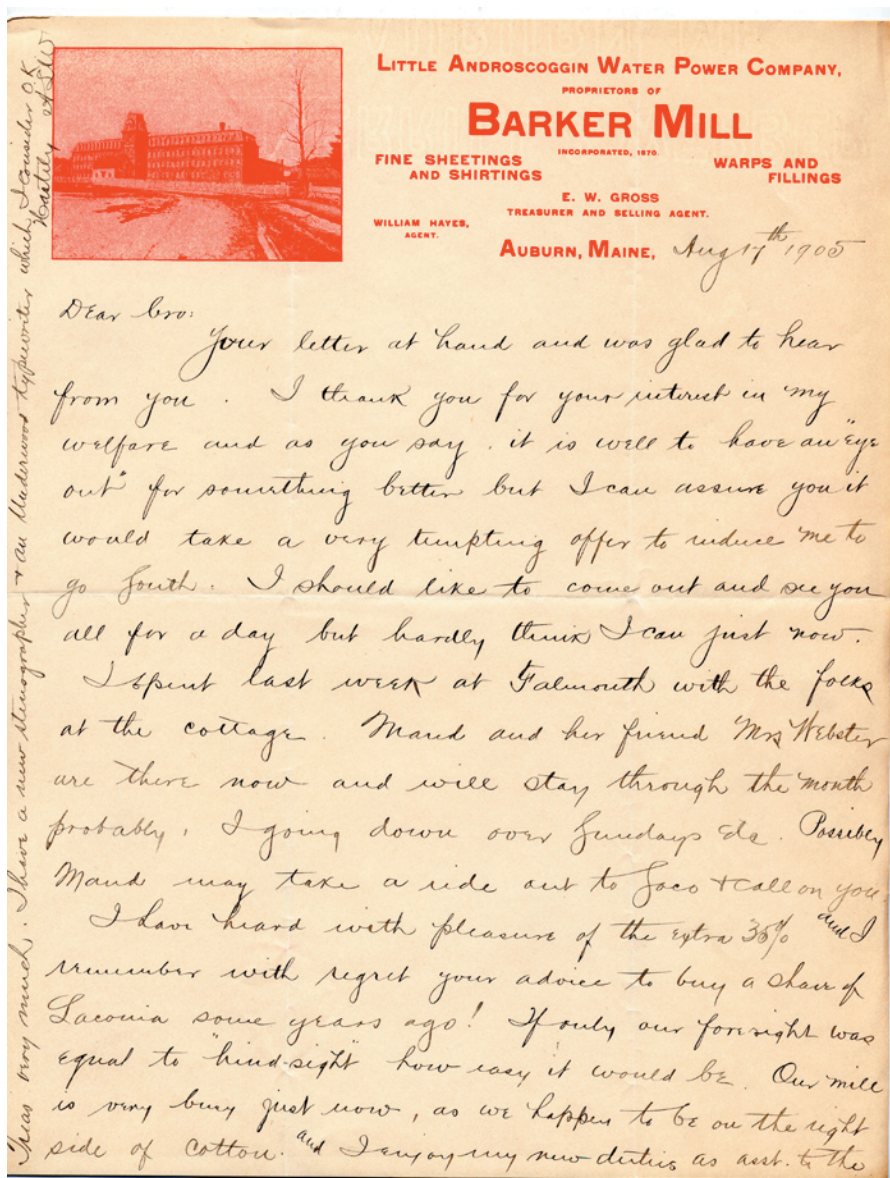 LITTLE ANDROSCOGGIN WATER POWER COMPANY,
PROPRIETORS OF
BARKER MILL
INCORPORATED, 1870.
FINE SHEETINGS
AND SHIRTINGS
WARPS AND
FILLINGS
E. W. GROSS
TREASURER AND SELLING AGENT.
WILLIAM HAYES,
AGENT.
AUBURN, MAINE, Aug 17th 1905
Dear Bro:
Your letter at hand and was glad to hear
from you. I thank you for your interest in my
welfare and as you say. it is well to have an "eye
out" for something better but I can assure you it
would take a very tempting offer to induce me to
go South. I should like to come out and see you
all for a day but hardly think I can just now.
I spent last week at Falmouth with the folks
at the cottage. Maud and her friend Mrs Webster
are there now and will stay through the month
probably, I going down over Sundays &c. Possibly
Maud may take a ride out to Saco + call on you.
I have heard with pleasure of the extra 35% and I
remember with regret your advice to buy a share of
Laconia some years ago! If only our foresight was
equal to "hind-sight" how easy it would be. Our mill
is very busy just now, as we happen to be on the right
side of cotton. and I enjoy my new duties as asst. to the
Treas very much. I have a new stenographer + an Underwood typewriter which I consider O.K.
Hastily